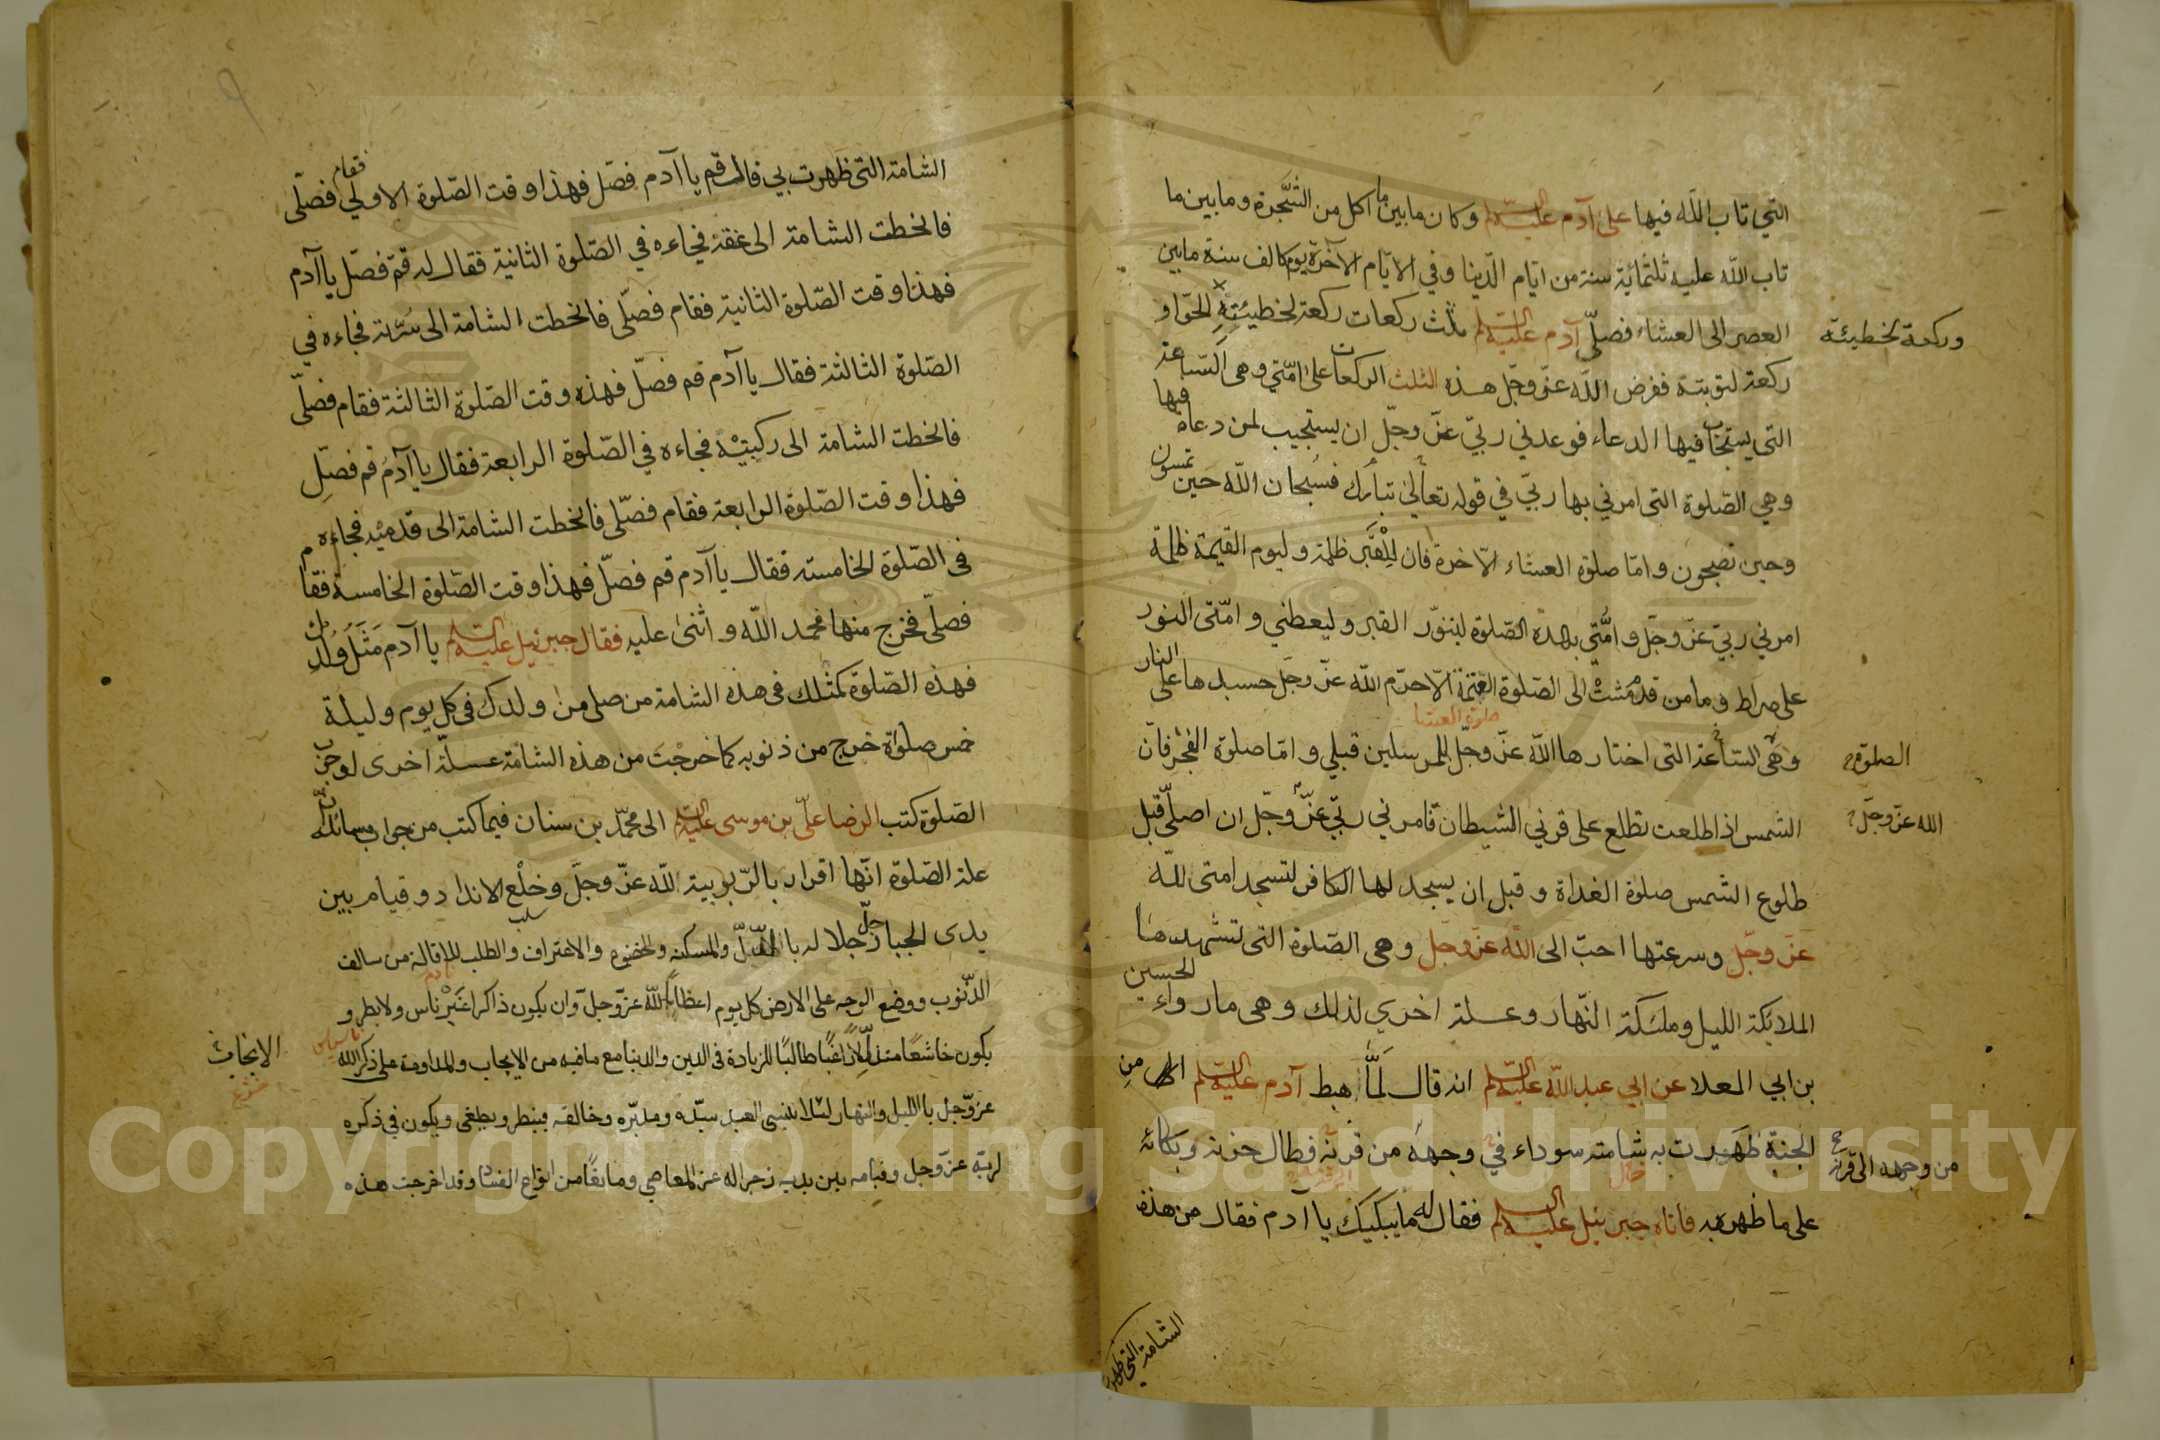 التي تاب الله فيها على آدم عليه السلم وكان ما بين ما اكل من الشجرة وما بين ما
تاب الله عليه ثلثمائة سنة من ايام الدينا وفي الايام الآخرة يوم كالف سنة مابين
العصر الى العشاء فصلى آدم عليه السلم ثلث ركعات ركعة لخطيئته لحوا و
وركعة لخطيئة
ركعة لتوبته ففرض الله عز وجل هذه الثلث الركعات على امتي وهي الساعة
التى يستجاب فيها الدعاء فوعدني ربي عز وجل ان يستجيب لمن دعاه فيها
وهي الصلوة التى امرني بها ربي في قوله تعالى تبارك فسبحان الله حين تمسون
وحين تصبحون واما صلوة العشاء الآخرة فان للقبر ظلمة وليوم القيمة ظلمة
امرني ربي عز وجل وامتي بهذه الصلوة لينور القبر وليعطني وامتى النور
على صراط وما من قدم مشت الى الصلوة العتمة الا حرم الله عز وجل جسدها على النار
صلوة العشا
وهي الساعة التى اختارها الله عز وجل للمرسلين قبلي واما صلوة الفجر فان
الصلوة
الشمس اذا طلعت تطلع على قرني الشيطان فامرني ربي عز وجل ان اصلى قبل
الله عز وجل
طلوع الشمس صلوة الغداة وقبل ان يسجد لها الكافر لتسجد امتى لله
عز وجل وسرعتها احب الى الله عز وجل وهى الصلوة التى تشهدها
الملائكة الليل وملئكة النهار وعلة اخرى لذلك وهى ما رواه الحسين
بن ابي العلا عن ابي عبد الله عليه السلم انه قال لما هبط آدم عليه السلم من
الجنة ظهرت به شامته سوداء في وجهه من قرنه فطال حزنه وبكائه
من وجهه الى قرنه
على ما ظهر به فاتاه جبرئيل عليه السلم فقال له ما يبكيك يا آدم فقال من هذه
الشامة التي ظهرت
الشامة التى ظهرت بي فقال قم يا آدم فصل فهذا وقت الصلوة الاولى فقام فصلى
فانحطت الشامة الى عنقه فجاءه في الصلوة الثانية فقال له قم فصل يا آدم
فهذا وقت الصلوة الثانية فقام فصلى فانحطت الشامة الى سرته فجاءه في
الصلوة الثالثة فقال يا آدم قم فصل فهذه وقت الصلوة الثالثة فقام فصلى
فانحطت الشامة الى ركبتيه فجاءه في الصلوة الرابعة فقال يا آدم قم فصل
فهذا وقت الصلوة الرابعة فقام فصلى فانحطت الشامة الى قدميه فجاءه
فى الصلوة الخامسة فقال يا آدم قم فصل فهذا وقت الصلوة الخامسة فقام
فصلى فخرج منها فحمد الله واثنى عليه فقال جبرئيل عليه السلم يا آدم مثل ولدك
فهذه الصلوة كمثلك فى هذه الشامة من صلى من ولدك فى كل يوم وليلة
خمس صلوة خرج من ذنوبه كما خرجت من هذه الشامة علة اخرى لوجوب
الصلوة كتب الرضا على بن موسى عليه السلم الى محمد بن سنان فيما كتب من جواب مسائله
علة الصلوة انها اقرار بالربوبية لله عز وجل وخلع الانداد وقيام بين
يدى الجبار جل جلاله بالذل والمسكنه والخضوع والاعتراف والطلب للاقالة من سالف
الذنوب ووضع الوجه على الارض كل يوم اعظاما لله عز وجل وان يكون ذاكرا غير ناس ولا بطر و
يكون خاشعا متذللا راغبا طالبا للزيادة في الدين والدينا مع ما فيه من الايجاب والمداومة على ذكر الله
الانجاث
عز وجل باالليل والنهار لئلا ينسى العبد سيده ومدبره وخالقه فيبطر ويطغى ويكون في ذكره
لربه عز وجل وقيامه بين يديه زجرا له عن المعاصي ومانعا من انواع الفساد وقد اخرجت هذه
Copyright © King Saud University